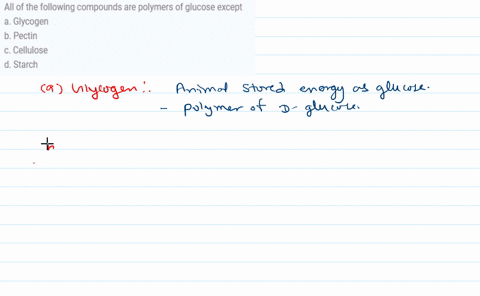 All of the following compounds are polymers of glucose except
a. Glycogen
b. Pectin
c. Cellulose
d. Starch
(a) Glycogen : Animal stored energy as glucose.
- polymer of D-glucose.